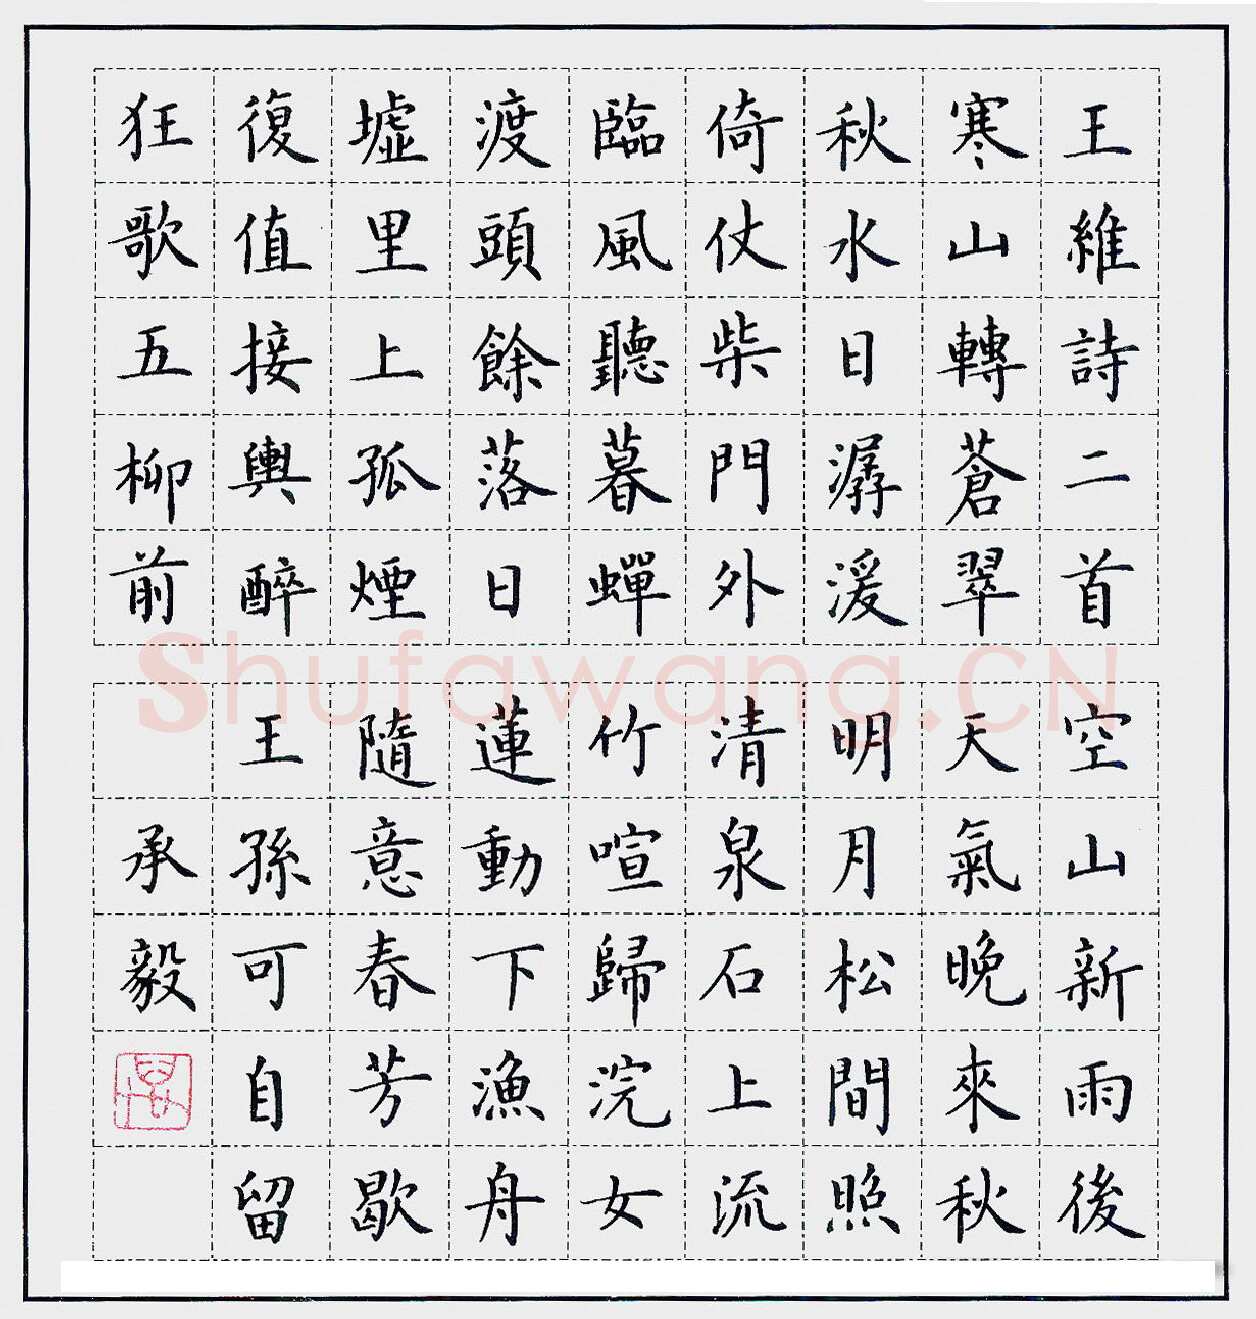 王維詩二首
寒山轉蒼翠
秋水日潺湲
倚仗柴門外
臨風聽暮蟬
渡頭餘落日
墟里上孤煙
復值接輿醉
狂歌五柳前
空山新雨後
天氣晚來秋
明月松間照
清泉石上流
竹喧歸浣女
蓮動下漁舟
隨意春芳歇
王孫可自留
承毅
Shufawang.CN